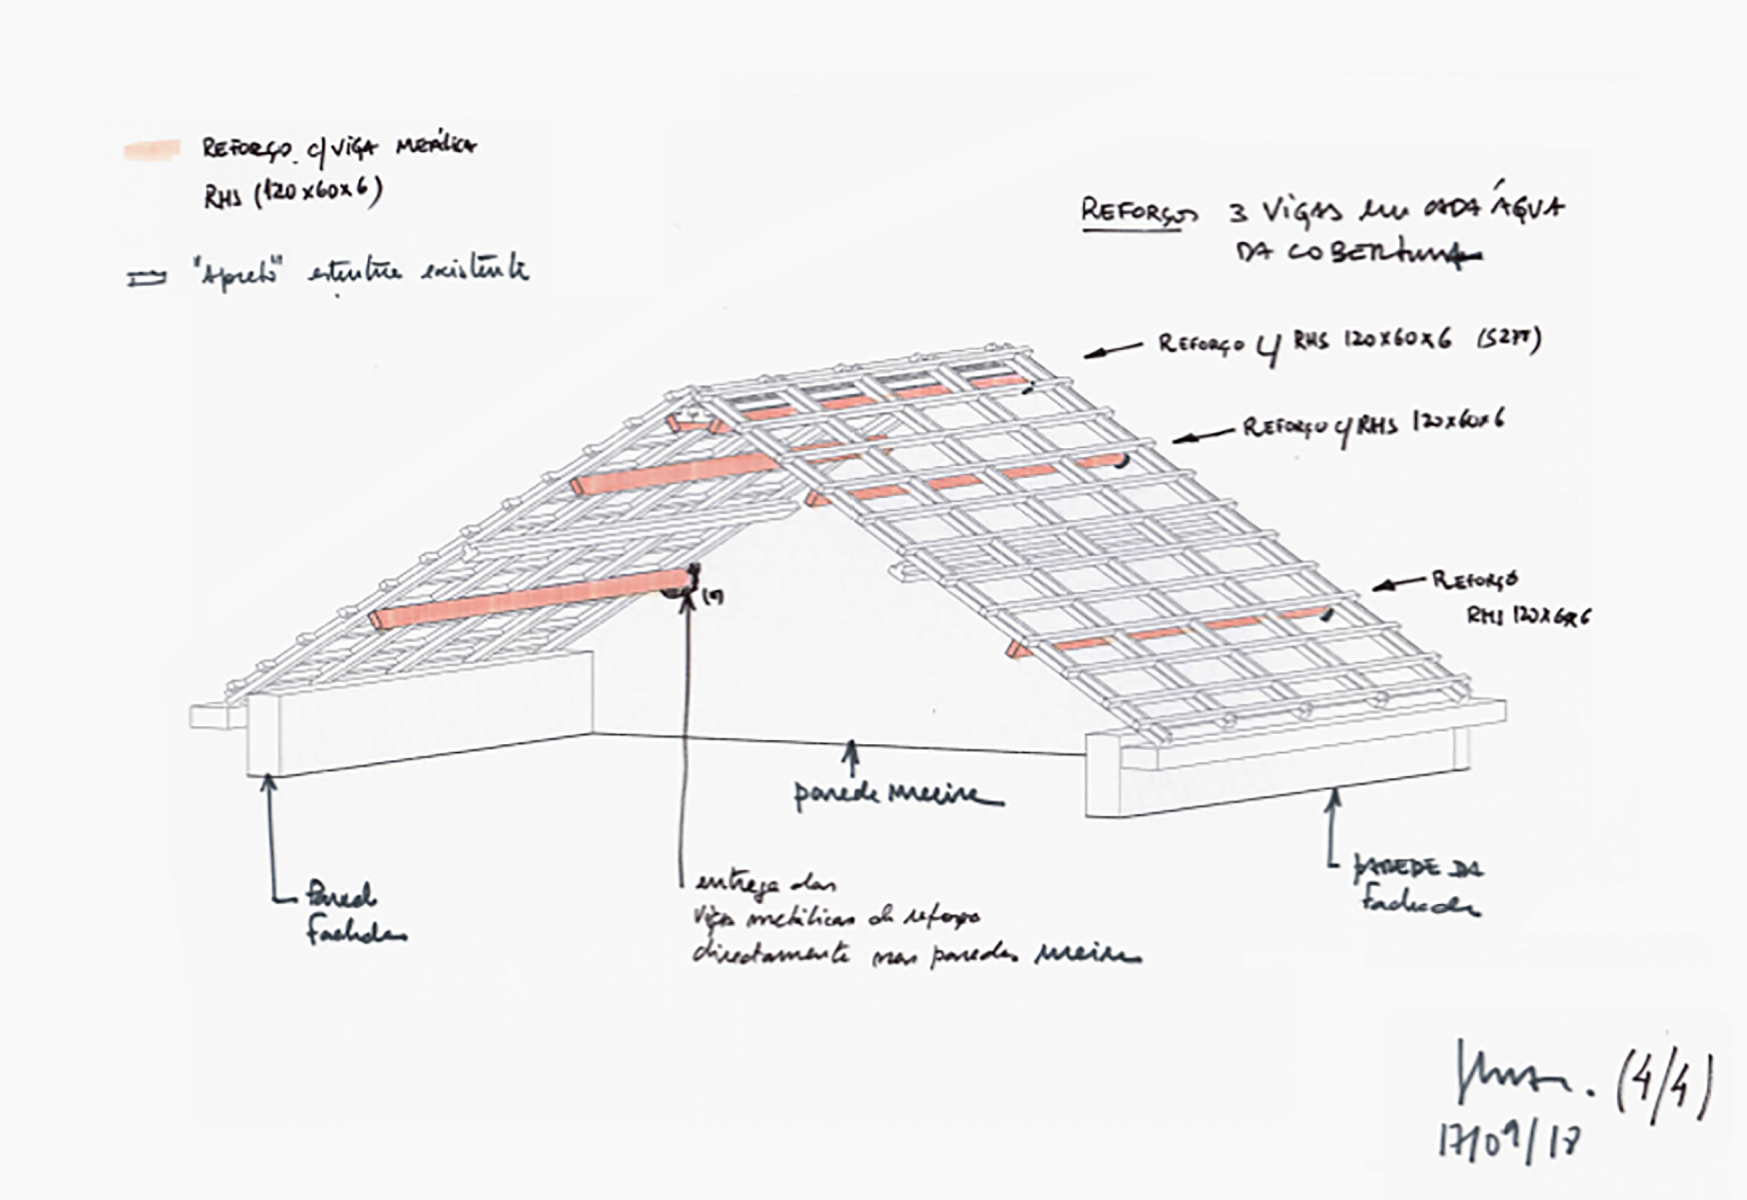 REFORÇO c/ VIGA METÁLICA
RHS (120x60x6)
"A preto" estrutura existente
REFORÇOS 3 VIGAS em CADA ÁGUA
DA COBERTURA
REFORÇO c/ RHS 120x60x6 (S275)
REFORÇO c/ RHS 120x60x6
REFORÇO
RHS 120x60x6
parede meeira
entrega das
vigas metálicas de reforço
directamente nas paredes meeira
Parede
fachada
PAREDE DA
fachada
(4/4)
17/09/18